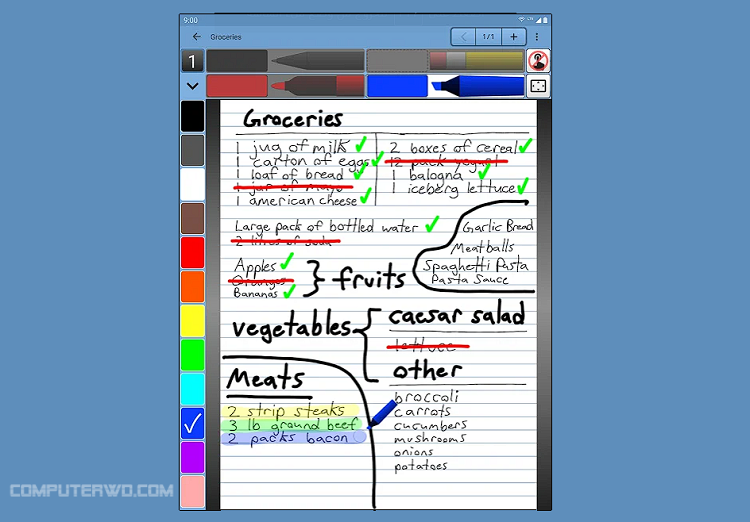 9:00
Groceries
1/1
1
Groceries
1 jug of milk
1 carton of eggs
1 loaf of bread
1 jar of mayo
1 american cheese
2 boxes of cereal
12 pack yogurt
1 balogna
1 iceberg lettuce
Large pack of bottled water
2 litres of soda
Garlic Bread
Meatballs
Spaghetti Pasta
Pasta Sauce
Apples
Oranges
Bananas
fruits
vegetables
caesar salad
lettuce
other
broccoli
carrots
cucumbers
mushrooms
onions
potatoes
Meats
2 strip steaks
3 lb ground beef
2 packs bacon
COMPUTERWD.COM